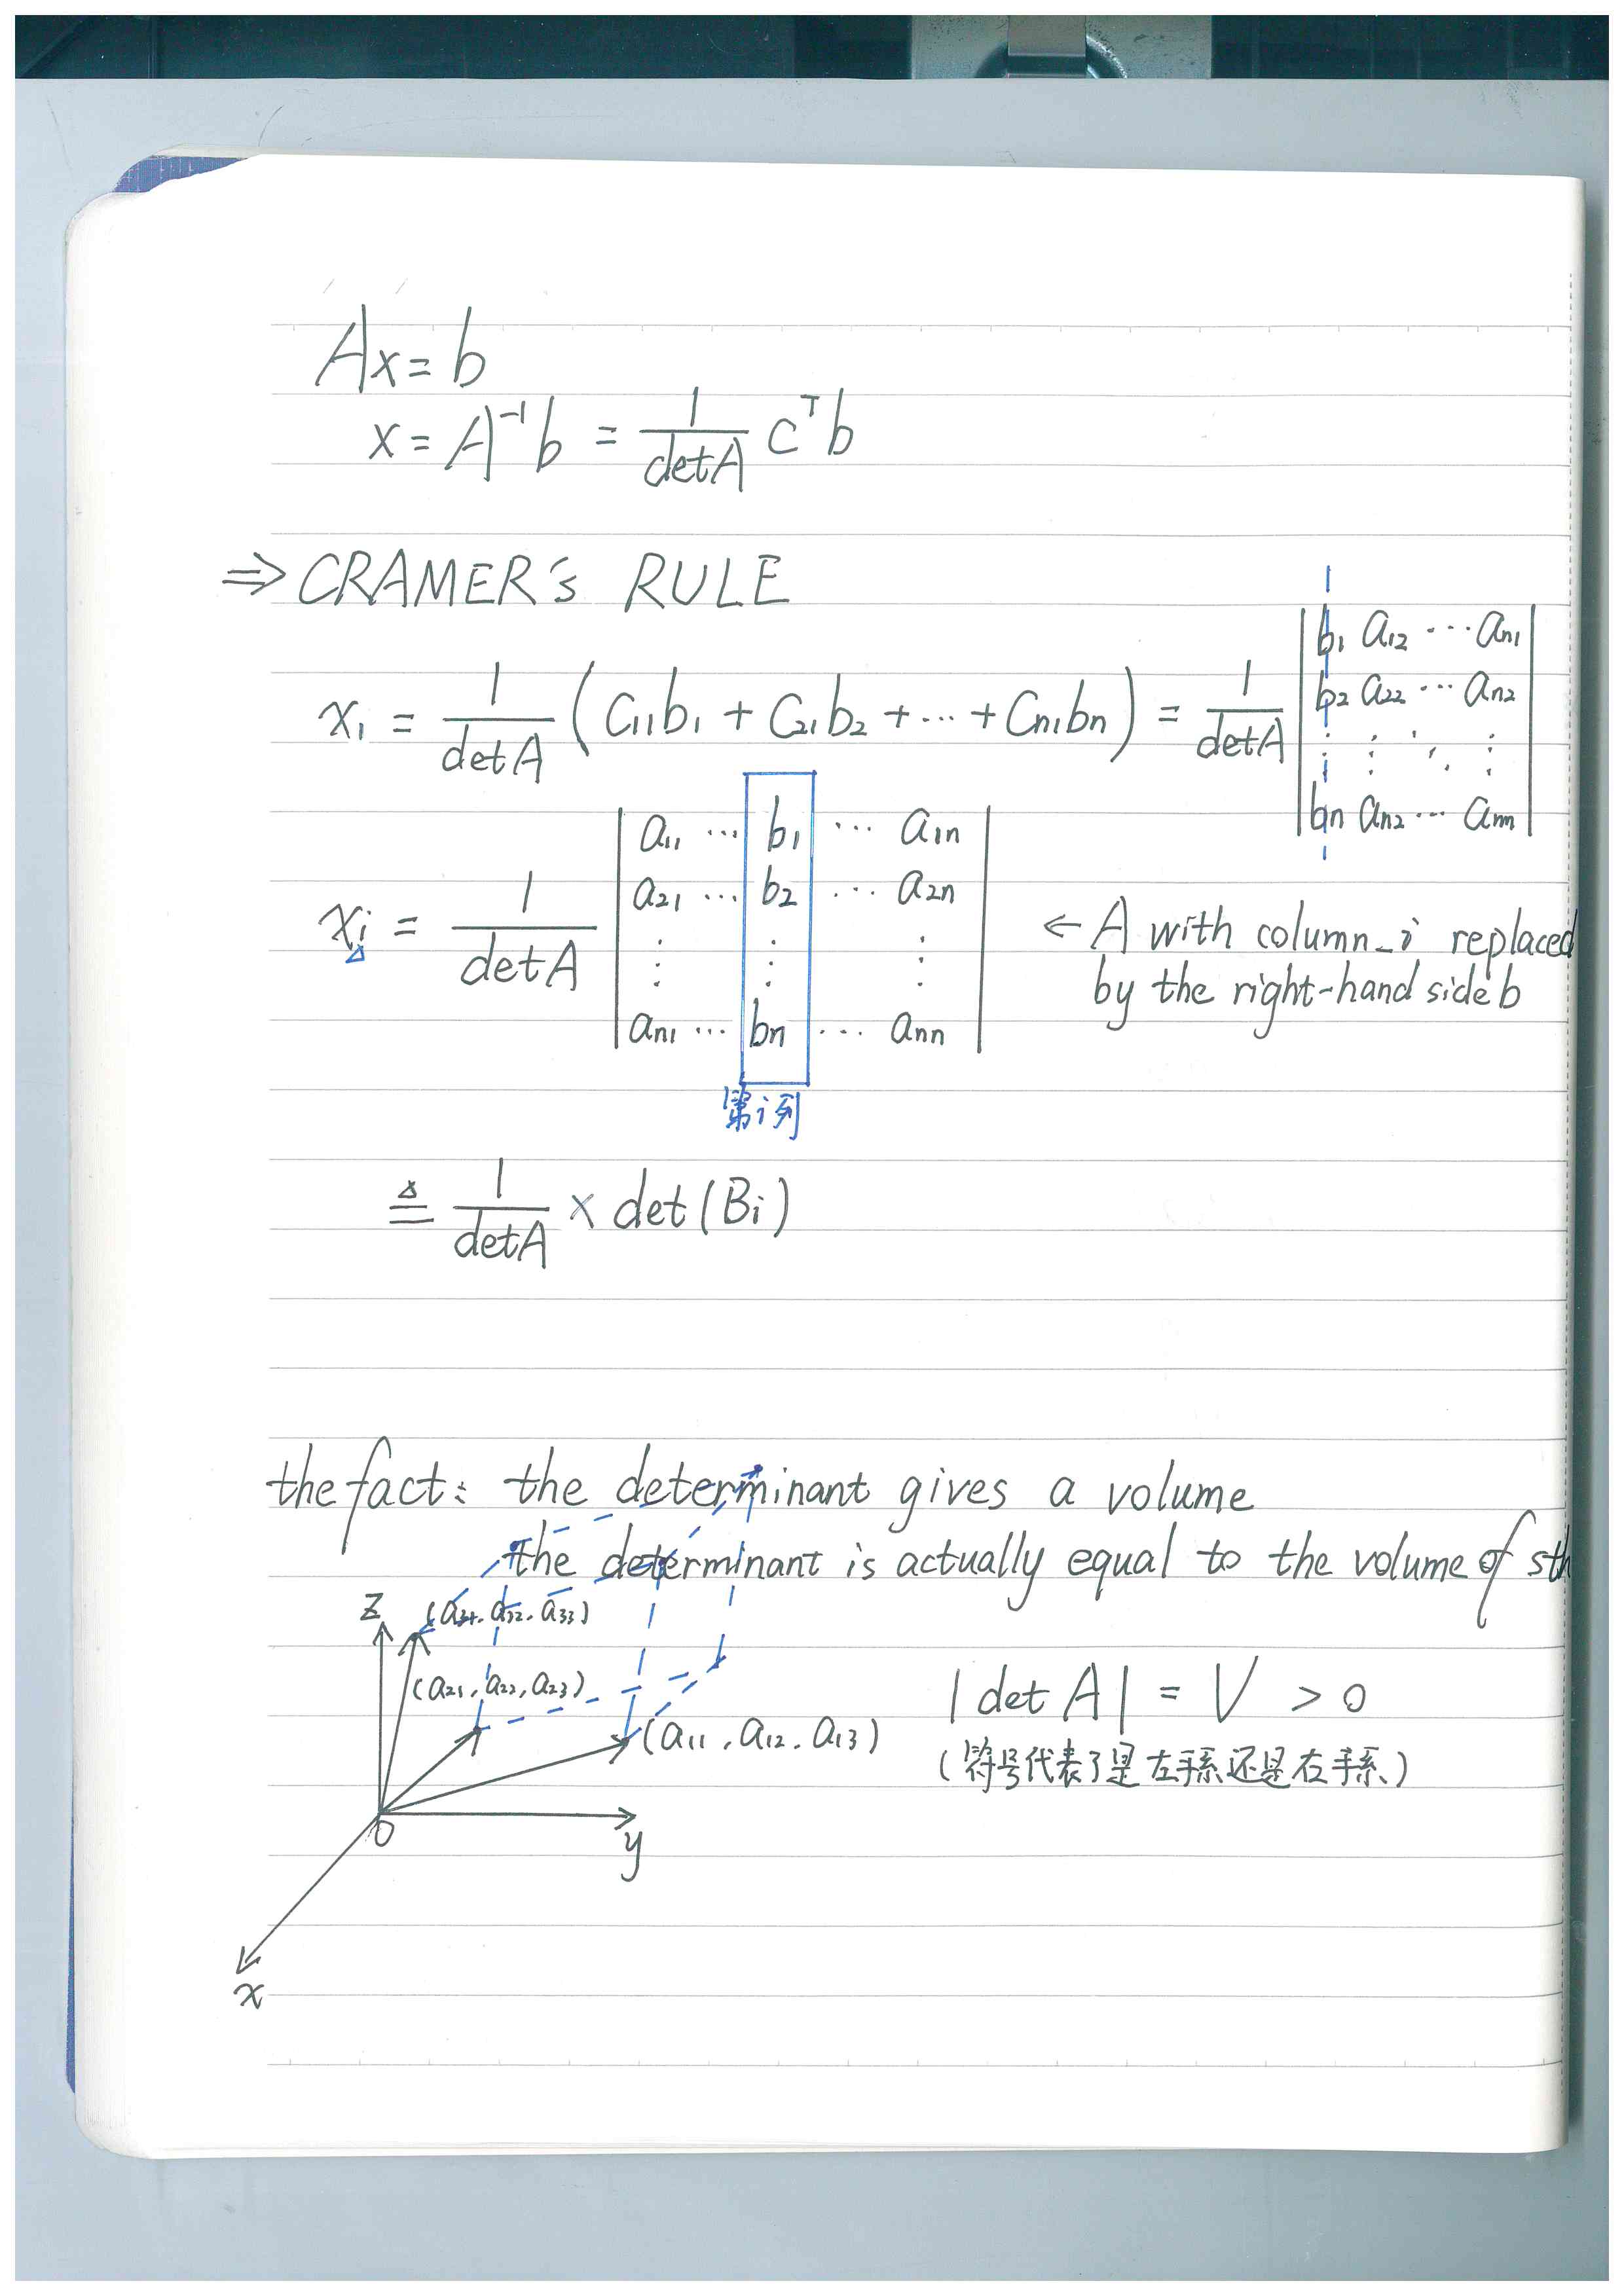 Ax = b
x = A⁻¹b = 1/detA Cᵀb
⇒ CRAMER's RULE
x₁ = 1/detA (C₁₁b₁ + C₂₁b₂ + ⋯ + Cₙ₁bₙ) = 1/detA | b₁ a₁₂ ⋯ aₙ₁
b₂ a₂₂ ⋯ aₙ₂
⋮ ⋮ ⋱ ⋮
bₙ aₙ₂ ⋯ aₙₙ |
xᵢ = 1/detA | a₁₁ ⋯ b₁ ⋯ a₁ₙ
a₂₁ ⋯ b₂ ⋯ a₂ₙ
⋮ ⋮ ⋮
aₙ₁ ⋯ bₙ ⋯ aₙₙ |
← A with column_i replaced
by the right-hand side b
第i列
≜ 1/detA × det(Bᵢ)
the fact: the determinant gives a volume
the determinant is actually equal to the volume of sth
z
(a₃₁, a₃₂, a₃₃)
(a₂₁, a₂₂, a₂₃)
(a₁₁, a₁₂, a₁₃)
|det A| = V > 0
(符号代表了是左手系还是右手系)
O
y
x